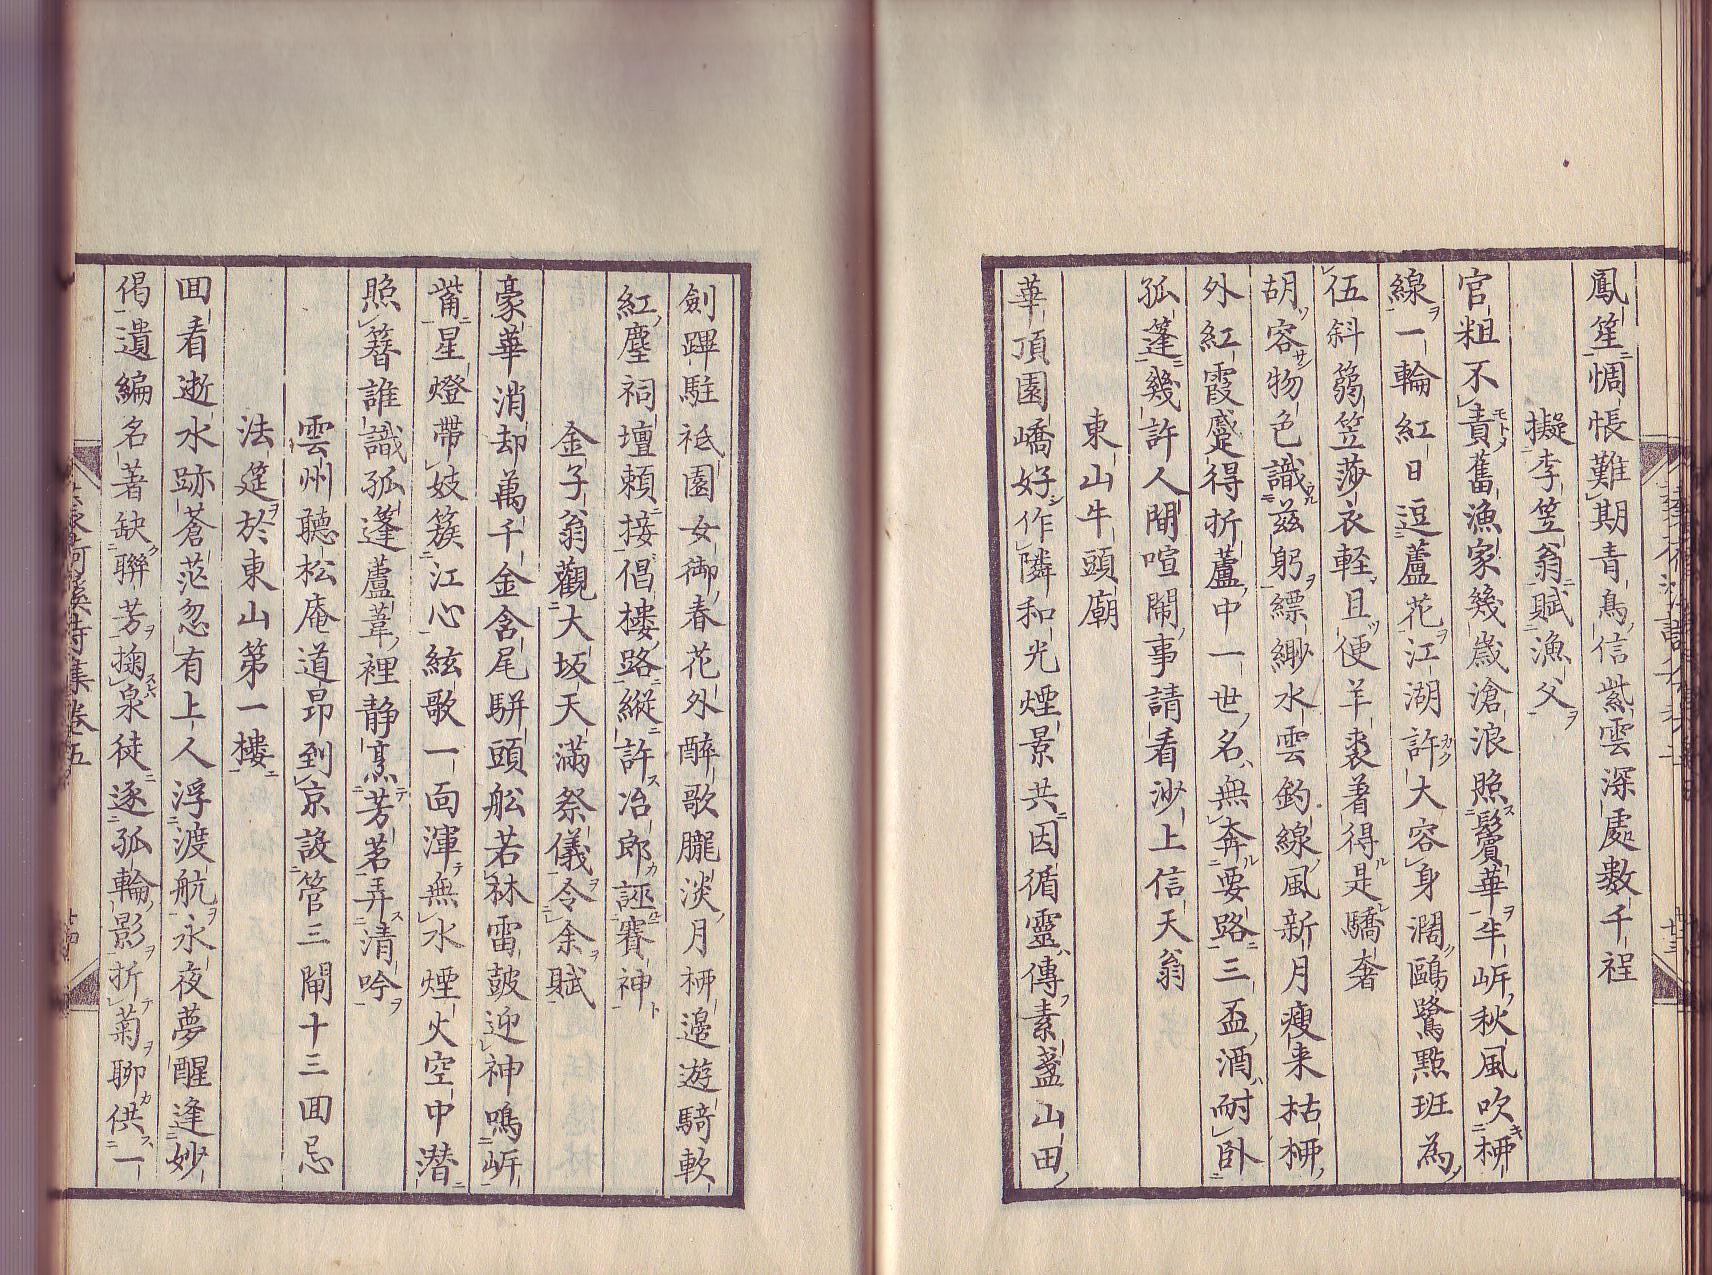 鳳笙惆悵難期青鳥信紫雲深處數千程
擬李笠翁賦漁父
官粗不責舊漁家幾歲滄浪照鬢華半岍秋風吹柳
線一輪紅日逗蘆花江湖許大容身濶鷗鷺點班為
伍斜篛笠莎衣軽且便羊裘着得是驕奢
胡容物色識茲躬縹緲水雲釣線風新月瘦来枯柳
外紅霞盛得折蘆中一世名無奔要路三盃酒耐卧
孤蓬幾許人間喧閙事請看沙上信天翁
東山牛頭廟
華頂園嶠好作隣和光煙景共因循靈傳素盞山田
劍蹕駐祇園女御春花外醉歌朧淡月柳邊遊騎軟
紅塵祠壇頼接倡樓路縱許冶郎誣賽神
金子翁觀大坂天滿祭儀令余賦
豪華消却萬千金含尾駢頭舩若林雷鼓迎神鳴岍
莆星燈帶妓簇江心絃歌一面渾無水煙火空中潜
照簪誰識孤篷蘆葦裡静烹芳茗弄清吟
雲州聽松庵道昂到京設管三閘十三回忌
法筵於東山第一樓
回看逝水跡蒼茫忽有上人浮渡航永夜夢醒逢妙
偈遺編名著缺聯芳掬泉徒逐孤輪影折菊聊供一
詩集卷五